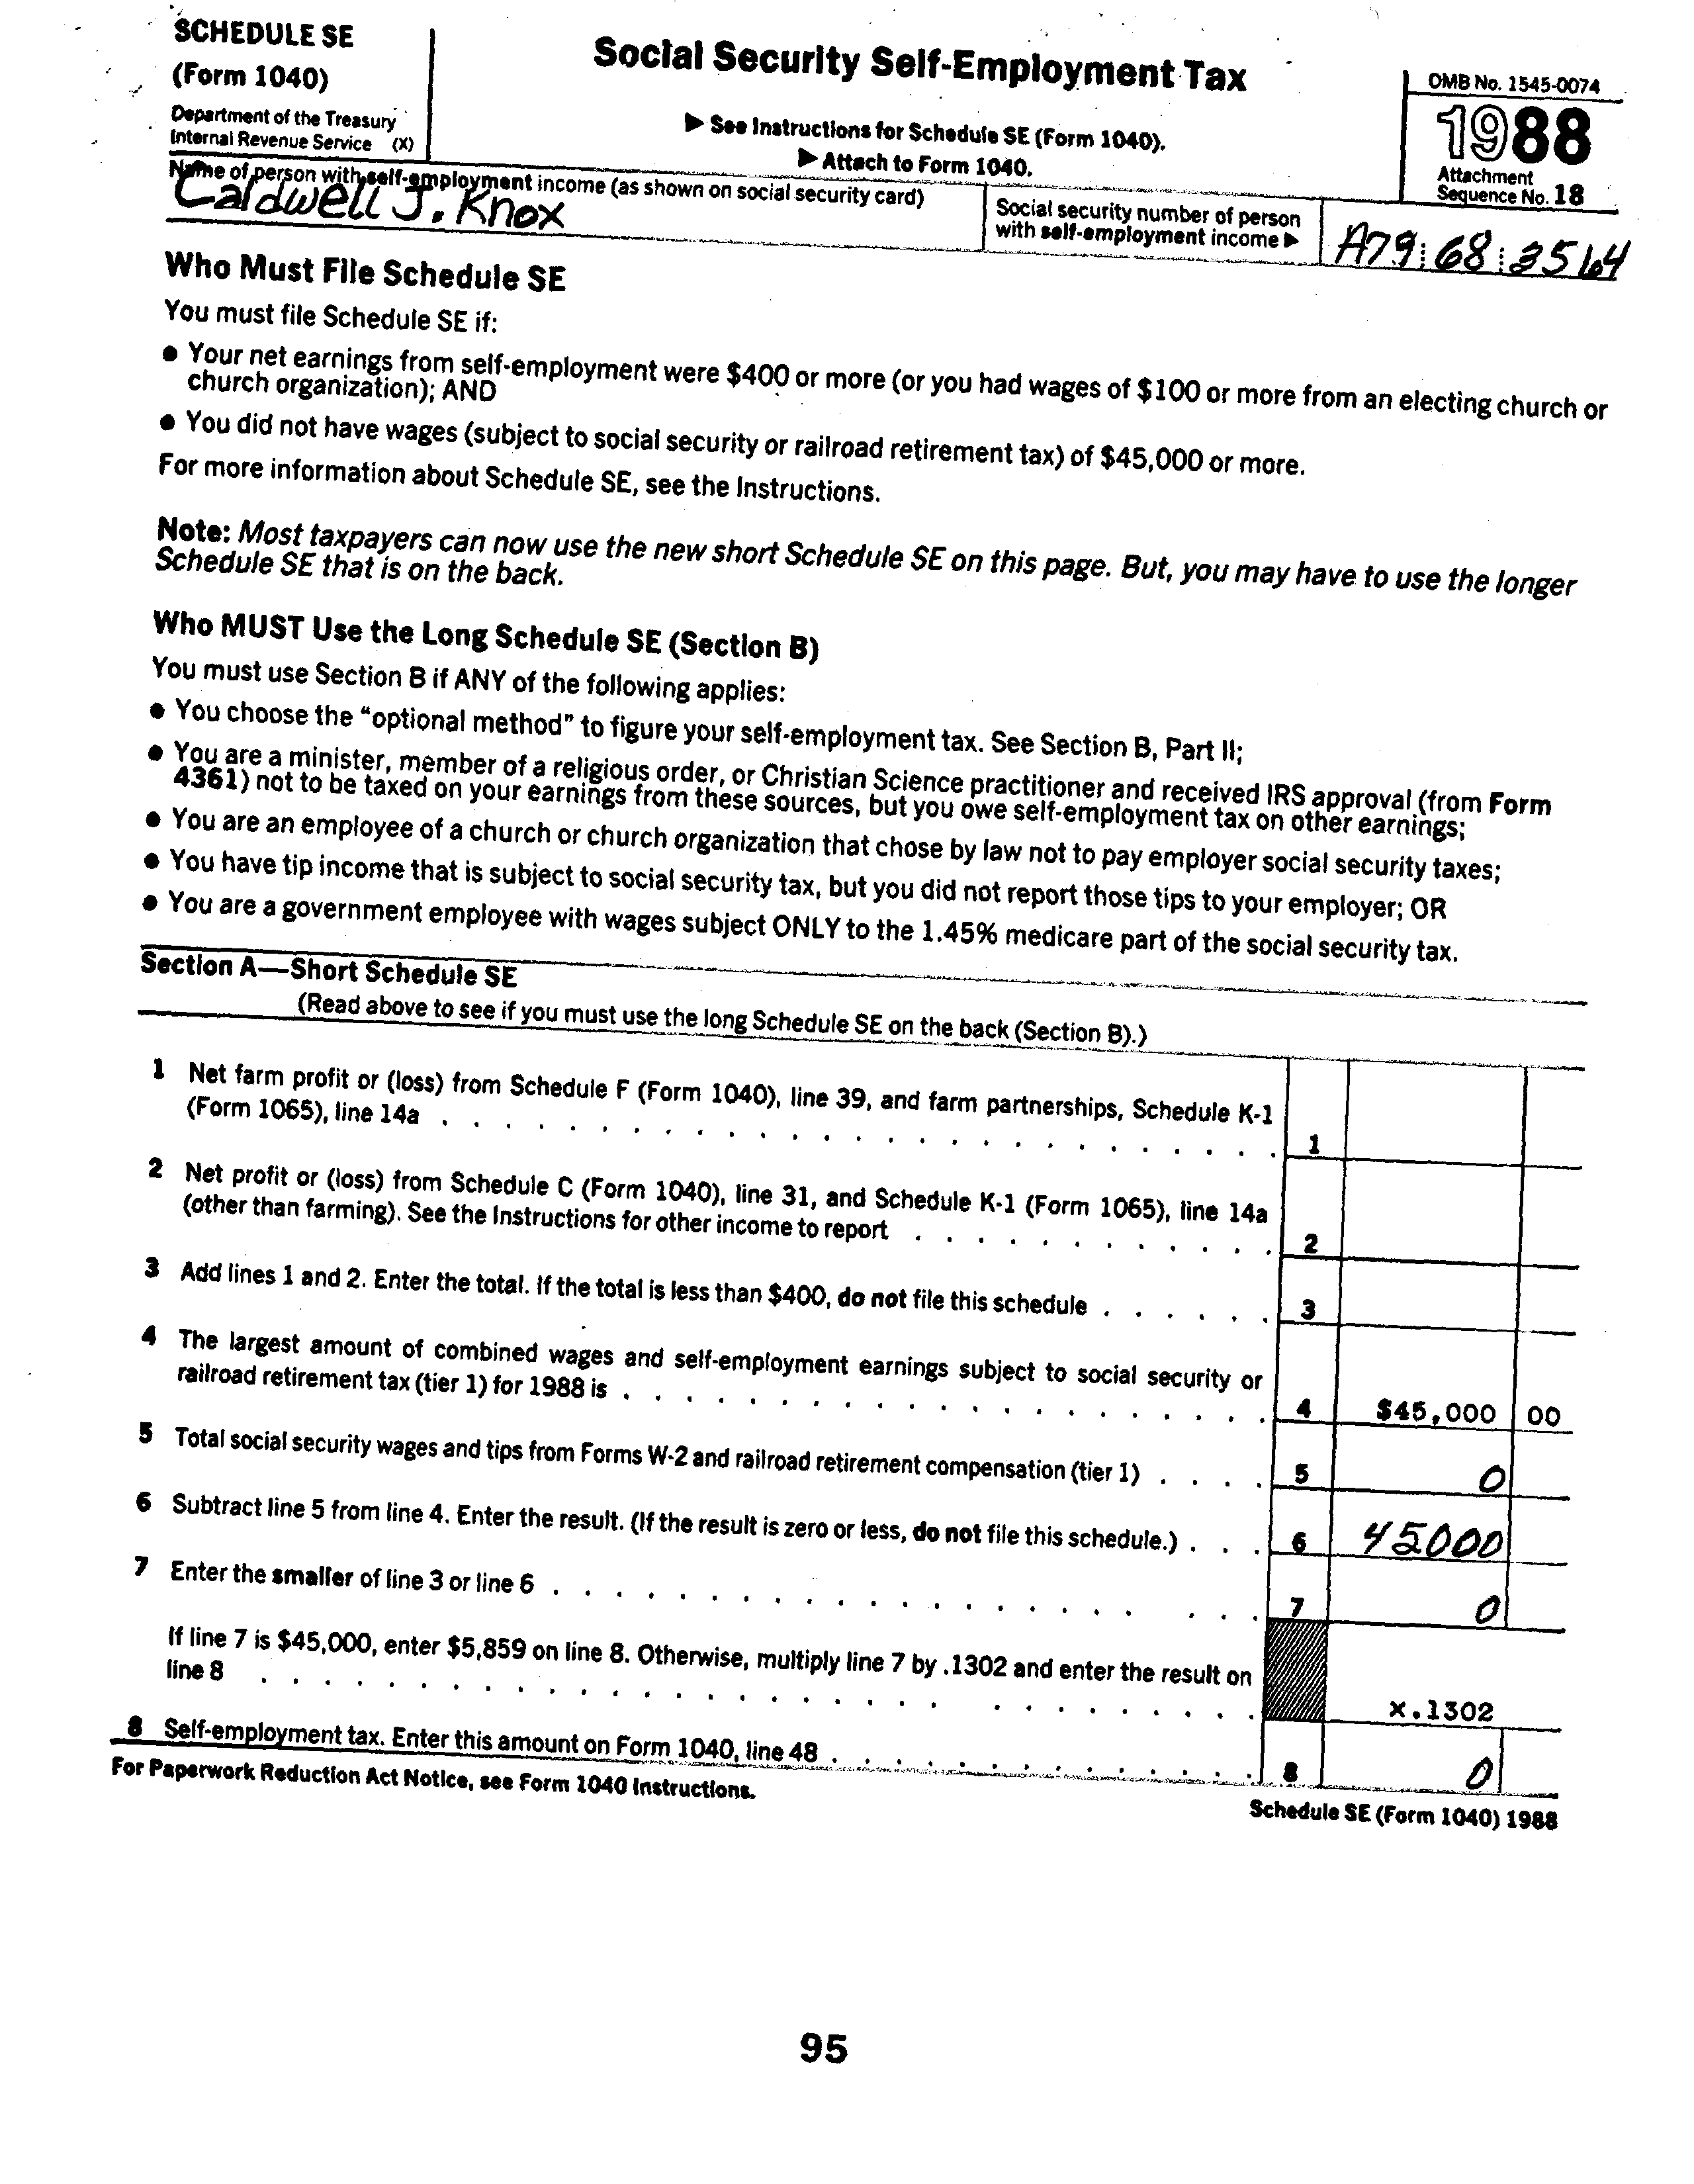 SCHEDULE SE
(Form 1040)
Department of the Treasury
Internal Revenue Service (X)
Social Security Self-Employment Tax
▶ See Instructions for Schedule SE (Form 1040).
▶ Attach to Form 1040.
OMB No. 1545-0074
1988
Attachment
Sequence No. 18
Name of person with self-employment income (as shown on social security card)
Caldwell J. Knox
Social security number of person
with self-employment income ▶
A79 68 3564
Who Must File Schedule SE
You must file Schedule SE if:
● Your net earnings from self-employment were $400 or more (or you had wages of $100 or more from an electing church or
church organization); AND
● You did not have wages (subject to social security or railroad retirement tax) of $45,000 or more.
For more information about Schedule SE, see the Instructions.
Note: Most taxpayers can now use the new short Schedule SE on this page. But, you may have to use the longer
Schedule SE that is on the back.
Who MUST Use the Long Schedule SE (Section B)
You must use Section B if ANY of the following applies:
● You choose the “optional method” to figure your self-employment tax. See Section B, Part II;
● You are a minister, member of a religious order, or Christian Science practitioner and received IRS approval (from Form
4361) not to be taxed on your earnings from these sources, but you owe self-employment tax on other earnings;
● You are an employee of a church or church organization that chose by law not to pay employer social security taxes;
● You have tip income that is subject to social security tax, but you did not report those tips to your employer; OR
● You are a government employee with wages subject ONLY to the 1.45% medicare part of the social security tax.
Section A—Short Schedule SE
(Read above to see if you must use the long Schedule SE on the back (Section B).)
1 Net farm profit or (loss) from Schedule F (Form 1040), line 39, and farm partnerships, Schedule K-1
(Form 1065), line 14a . . . . . . . . . . . . . . . . . . . . . . . . . . 1
2 Net profit or (loss) from Schedule C (Form 1040), line 31, and Schedule K-1 (Form 1065), line 14a
(other than farming). See the Instructions for other income to report . . . . . . . . . . . . 2
3 Add lines 1 and 2. Enter the total. If the total is less than $400, do not file this schedule . . . . . . 3
4 The largest amount of combined wages and self-employment earnings subject to social security or
railroad retirement tax (tier 1) for 1988 is . . . . . . . . . . . . . . . . . . . . . 4 $45,000 00
5 Total social security wages and tips from Forms W-2 and railroad retirement compensation (tier 1) . . . . 5 0
6 Subtract line 5 from line 4. Enter the result. (If the result is zero or less, do not file this schedule.) . . . 6 45000
7 Enter the smaller of line 3 or line 6 . . . . . . . . . . . . . . . . . . . . . . 7 0
If line 7 is $45,000, enter $5,859 on line 8. Otherwise, multiply line 7 by .1302 and enter the result on
line 8 . . . . . . . . . . . . . . . . . . . . . . . . . . . . . . x.1302
8 Self-employment tax. Enter this amount on Form 1040, line 48 . . . . . . . . . . . . . . 8 0
For Paperwork Reduction Act Notice, see Form 1040 Instructions.
Schedule SE (Form 1040) 1988
95